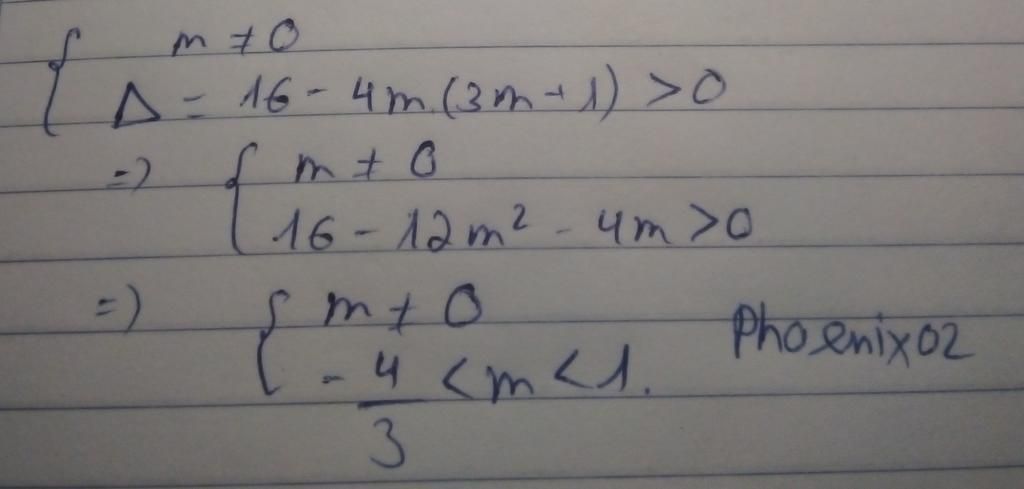 { m ≠ 0
Δ = 16 - 4m.(3m+1) > 0
=> { m ≠ 0
16 - 12m² - 4m > 0
=> { m ≠ 0
-4/3 < m < 1.
Phoenix02